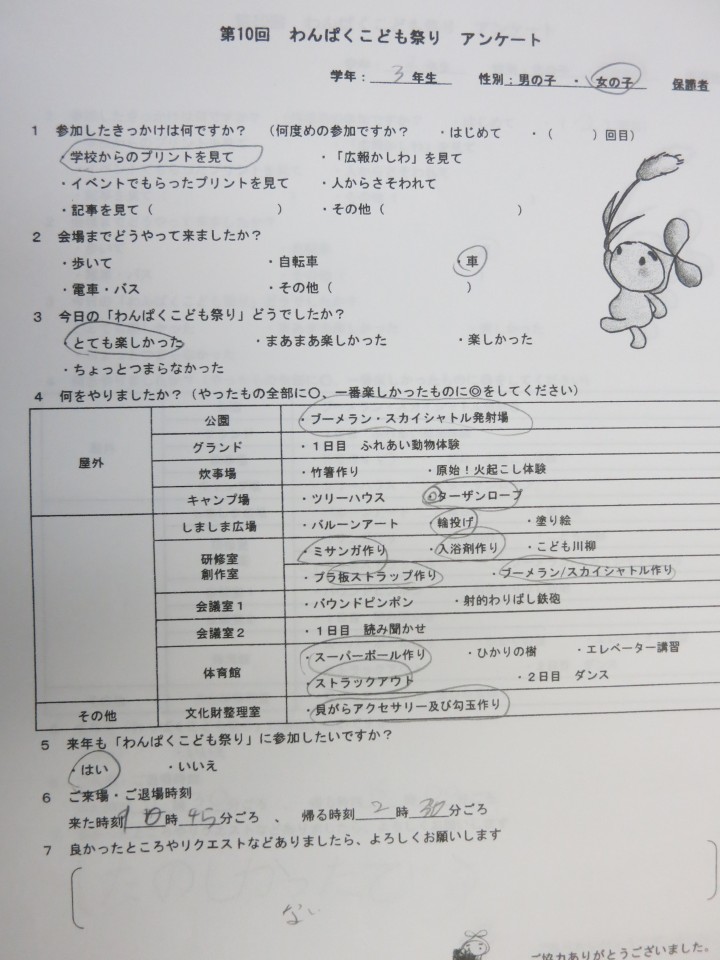 第10回　わんぱくこども祭り　アンケート
学年：3年生　性別：男の子　・　女の子　保護者
1　参加したきっかけは何ですか？　（何度めの参加ですか？　・はじめて　・（　　　）回目）
・学校からのプリントを見て　・「広報かしわ」を見て
・イベントでもらったプリントを見て　・人からさそわれて
・記事を見て（　　　）　・その他（　　　）
2　会場までどうやって来ましたか？
・歩いて　・自転車　・車
・電車・バス　・その他（　　　）
3　今日の「わんぱくこども祭り」どうでしたか？
・とても楽しかった　・まあまあ楽しかった　・楽しかった
・ちょっとつまらなかった
4　何をやりましたか？（やったもの全部に〇、一番楽しかったものに◎をしてください）
屋外　公園　・ブーメラン・スカイシャトル発射場
グランド　・1日目　ふれあい動物体験
炊事場　・竹箸作り　・原始！火起こし体験
キャンプ場　・ツリーハウス　・ターザンロープ
しましま広場　・バルーンアート　・輪投げ　・塗り絵
研修室　創作室　・ミサンガ作り　・入浴剤作り　・こども川柳
・プラ板ストラップ作り　・ブーメラン/スカイシャトル作り
会議室1　・バウンドピンポン　・射的わりばし鉄砲
会議室2　・1日目　読み聞かせ
体育館　・スーパーボール作り　・ひかりの樹　・エレベーター講習
・ストラックアウト　・2日目　ダンス
その他　文化財整理室　・貝がらアクセサリー及び勾玉作り
5　来年も「わんぱくこども祭り」に参加したいですか？
・はい　・いいえ
6　ご来場・ご退場時刻
来た時刻10時45分ごろ　、　帰る時刻2時30分ごろ
7　良かったところやリクエストなどありましたら、よろしくお願いします
ない
ご協力ありがとうございました。